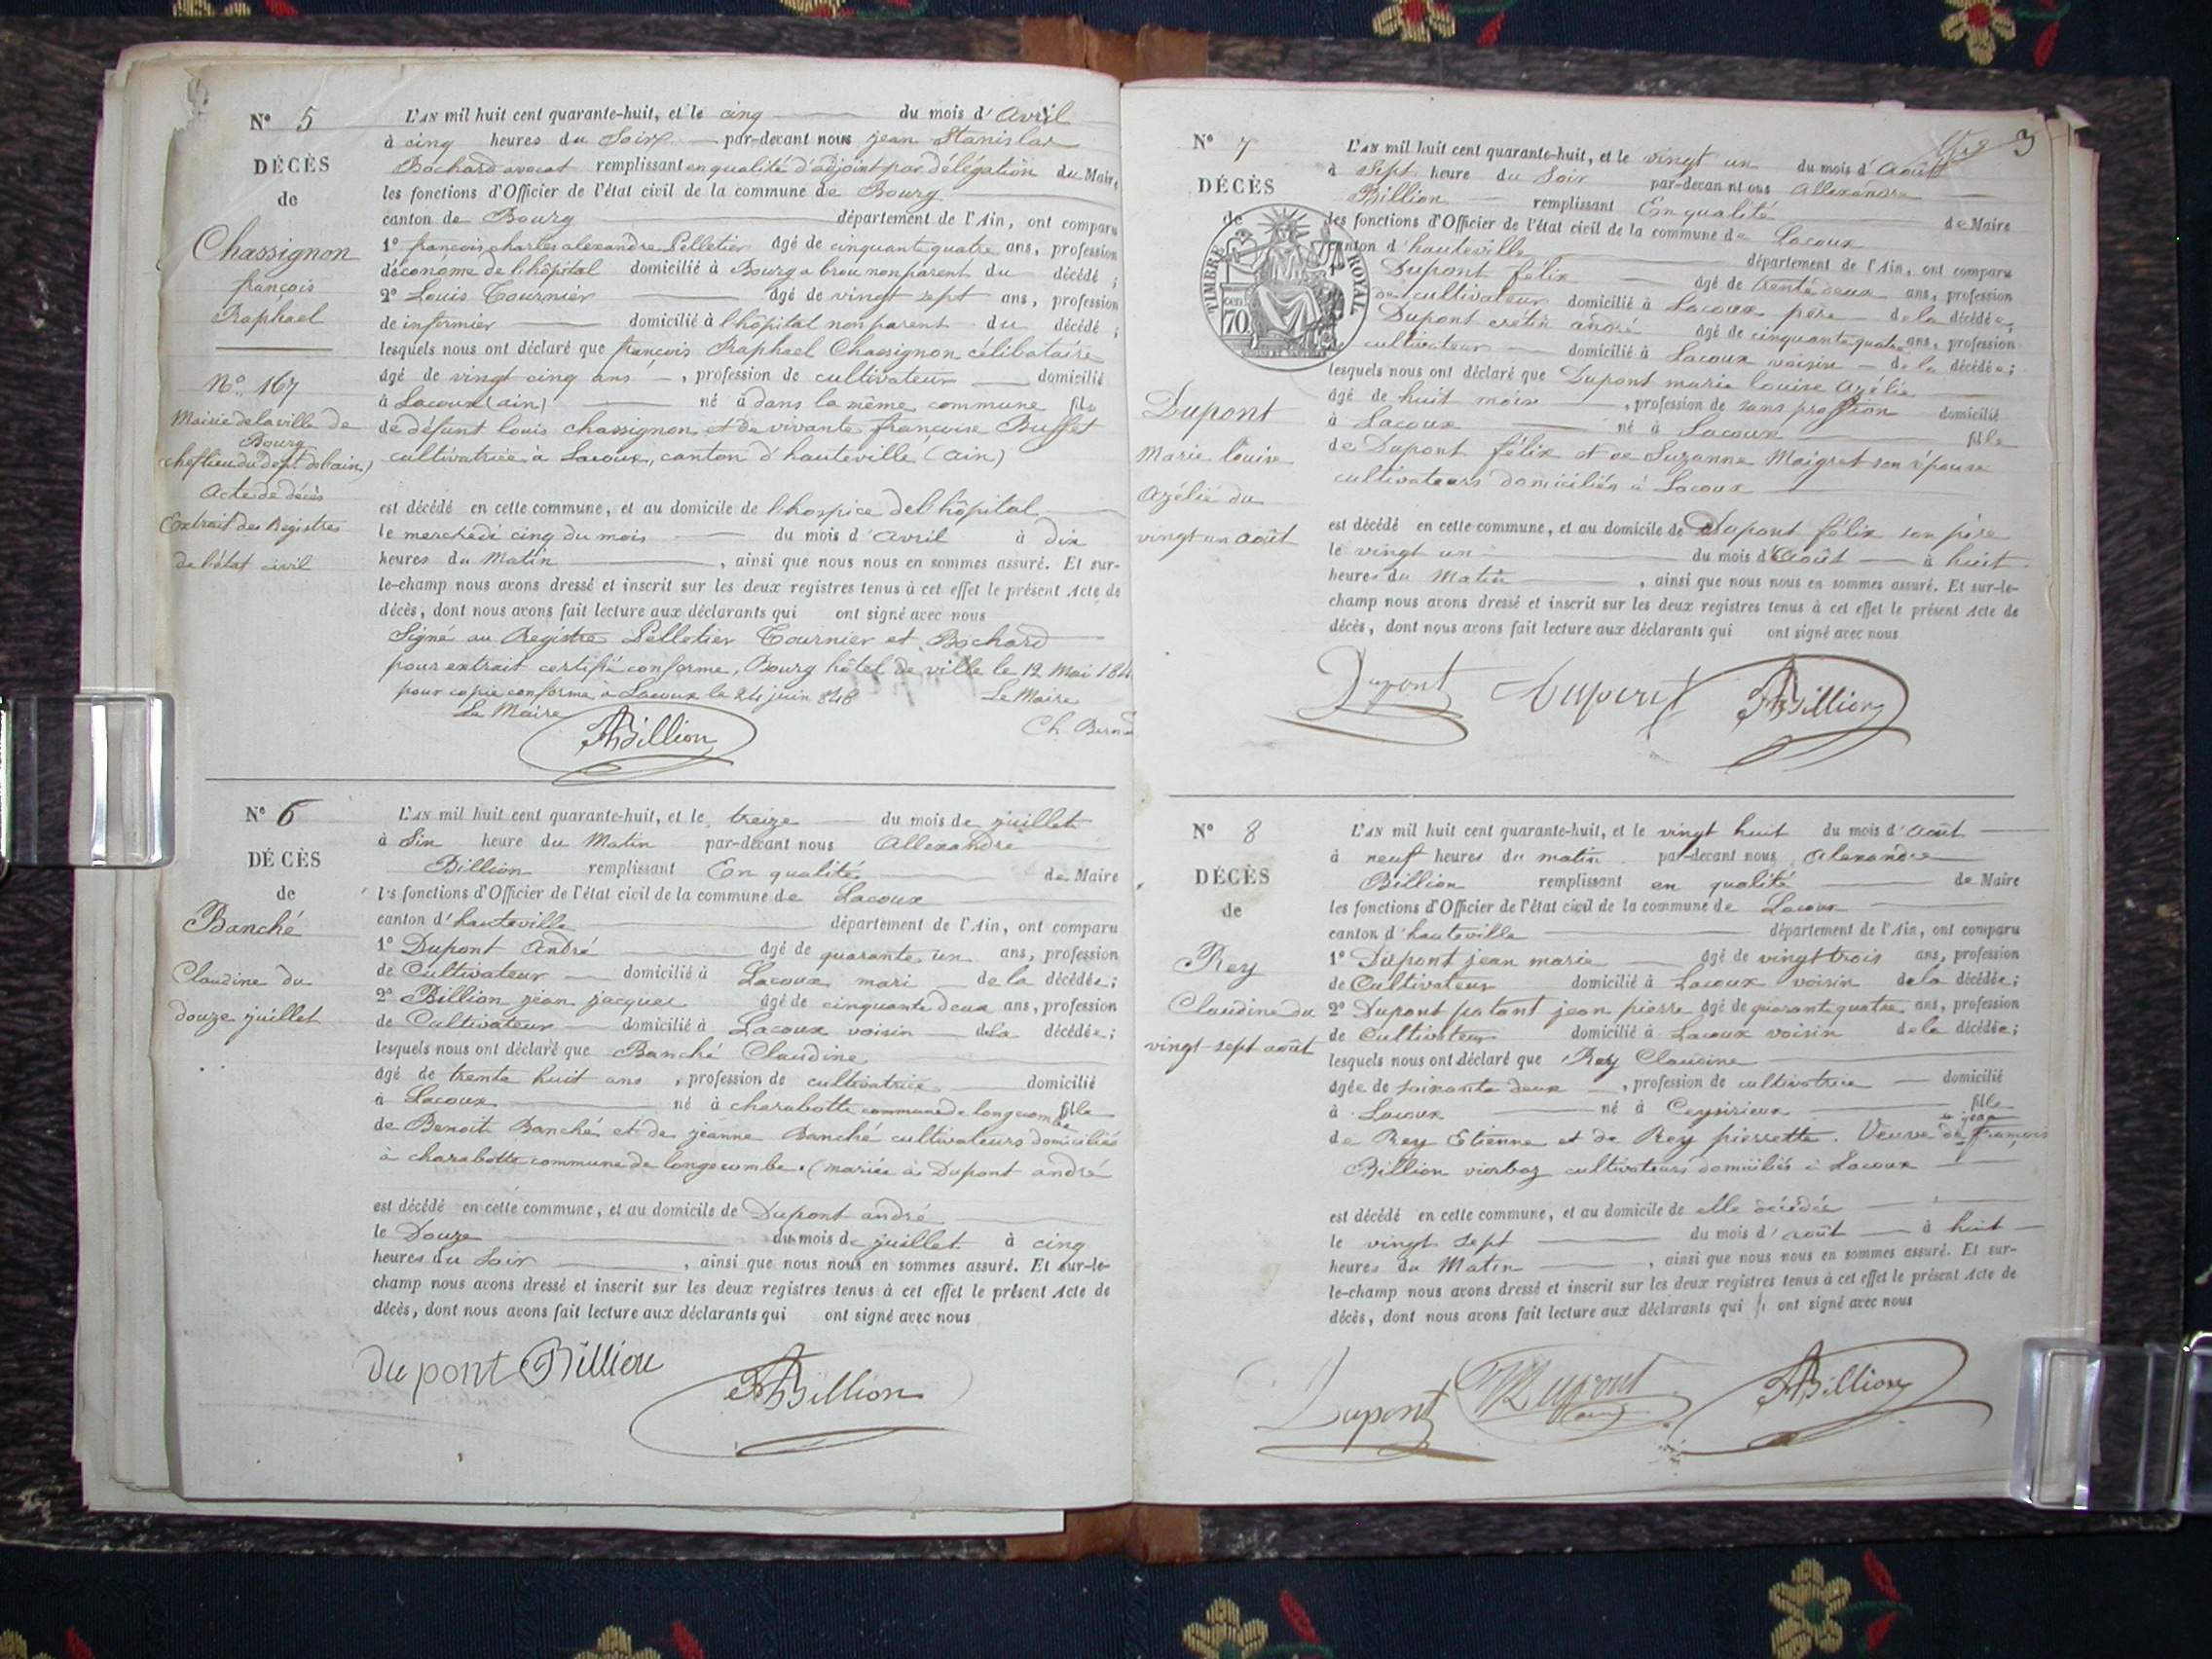 N° 5
DÉCÈS
de
Chassignon
françois
Raphael
N° 167
Mairie de la ville de
Bourg
chef lieu du dépt de l'ain)
Acte de décès
Extrait des Registres
de l'état civil
L'AN mil huit cent quarante-huit, et le cinq du mois d'Avril
à cinq heures du Soir par-devant nous jean Stanislas
Bochard avocat remplissant en qualité d'adjoint par délégation du Maire
les fonctions d'Officier de l'état civil de la commune de Bourg
canton de Bourg département de l'Ain, ont comparu
1° françois charles alexandre Pelletier âgé de cinquante quatre ans, profession
d'économe de l'hôpital domicilié à Bourg a brou non parent du décédé;
2° Louis Tournier âgé de vingt sept ans, profession
de infirmier domicilié à l'hôpital non parent du décédé;
lesquels nous ont déclaré que françois Raphael Chassignon célibataire
âgé de vingt cinq ans, profession de cultivateur domicilié
à Lacoux (ain) né à dans la même commune fils
de défunt louis chassignon et de vivante françoise Buffet
cultivatrice à Lacoux, canton d'hauteville (ain)
est décédé en cette commune, et au domicile de l'hospice de l'hôpital
le mercredi cinq du mois du mois d'avril à dix
heures du Matin, ainsi que nous nous en sommes assuré. Et sur-
le-champ nous avons dressé et inscrit sur les deux registres tenus à cet effet le présent Acte de
décès, dont nous avons fait lecture aux déclarants qui ont signé avec nous
Signé au Registre Pelletier Tournier et Bochard
pour extrait certifié conforme, Bourg hôtel de ville le 12 Mai 184
pour copie conforme à Lacoux le 24 juin 848 Le Maire
Le Maire Ch. Bern
ABillion
N° 6
DÉCÈS
de
Banché
Claudine du
douze juillet
L'AN mil huit cent quarante-huit, et le treize du mois de juillet
à Six heure du Matin par-devant nous Allexandre
Billion remplissant En qualité de Maire
les fonctions d'Officier de l'état civil de la commune de Lacoux
canton d'hauteville département de l'Ain, ont comparu
1° Dupont André âgé de quarante un ans, profession
de Cultivateur domicilié à Lacoux mari de la décédée;
2° Billion jean jacques âgé de cinquante deux ans, profession
de Cultivateur domicilié à Lacoux voisin de la décédée;
lesquels nous ont déclaré que Banché Claudine
âgé de trente huit ans, profession de cultivatrice domicilié
à Lacoux né à charabotte commune de longecombe fille
de Benoit Banché et de jeanne Banché cultivateurs domiciliés
à charabotte commune de longecombe. (mariée à Dupont andré
est décédé en cette commune, et au domicile de Dupont andré
le Douze du mois de juillet à cinq
heures du Soir, ainsi que nous nous en sommes assuré. Et sur-le-
champ nous avons dressé et inscrit sur les deux registres tenus à cet effet le présent Acte de
décès, dont nous avons fait lecture aux déclarants qui ont signé avec nous
dupont Billion ABillion
3
N° 7
DÉCÈS
de
TIMBRE ROYAL
70
Dupont
Marie louise
Azélie du
vingt un août
L'AN mil huit cent quarante-huit, et le vingt un du mois d'Août
à Sept heure du Soir par-devant nous Allexandre
Billion remplissant En qualité de Maire
les fonctions d'Officier de l'état civil de la commune de Lacoux
canton d'hauteville département de l'Ain, ont comparu
Dupont félix âgé de trente deux ans, profession
de cultivateur domicilié à Lacoux père de la décédée;
Dupont crétin andré âgé de cinquante quatre ans, profession
cultivateur domicilié à Lacoux voisin de la décédée;
lesquels nous ont déclaré que Dupont marie louise azélie
âgé de huit mois, profession de sans profession domicilié
à Lacoux né à Lacoux fille
de Dupont félix et de Suzanne Maigret son épouse
cultivateurs domiciliés à Lacoux
est décédé en cette commune, et au domicile de Dupont félix son père
le vingt un du mois d'Août à huit
heures du Matin, ainsi que nous nous en sommes assuré. Et sur-le-
champ nous avons dressé et inscrit sur les deux registres tenus à cet effet le présent Acte de
décès, dont nous avons fait lecture aux déclarants qui ont signé avec nous
Dupont Dupont ABillion
N° 8
DÉCÈS
de
Rey
Claudine du
vingt-sept août
L'AN mil huit cent quarante-huit, et le vingt huit du mois d'Août
à neuf heures du matin par-devant nous Alexandre
Billion remplissant en qualité de Maire
les fonctions d'Officier de l'état civil de la commune de Lacoux
canton d'hauteville département de l'Ain, ont comparu
1° Dupont jean marie âgé de vingt trois ans, profession
de Cultivateur domicilié à Lacoux voisin de la décédée;
2° Dupont patant jean pierre âgé de quarante quatre ans, profession
de Cultivateur domicilié à Lacoux voisin de la décédée;
lesquels nous ont déclaré que Rey Claudine
âgée de soixante deux, profession de cultivatrice domicilié
à Lacoux né à Ceyzirieux fille
de Rey Etienne et de Rey pierrette. Veuve de jean françois
Billion viorbaz cultivateurs domiciliés à Lacoux
est décédé en cette commune, et au domicile de elle décédée
le vingt sept du mois d'août à huit
heures du Matin, ainsi que nous nous en sommes assuré. Et sur-
le-champ nous avons dressé et inscrit sur les deux registres tenus à cet effet le présent Acte de
décès, dont nous avons fait lecture aux déclarants qui ont signé avec nous
Dupont Dupont ABillion